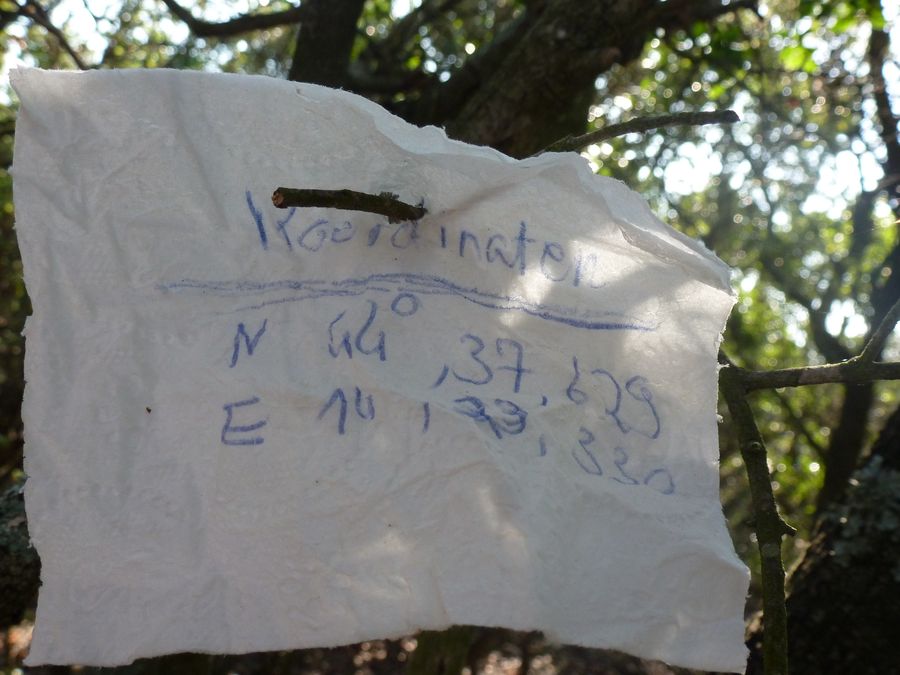 Koordinaten
N 44° ,37,629
E 14 , 33, 330